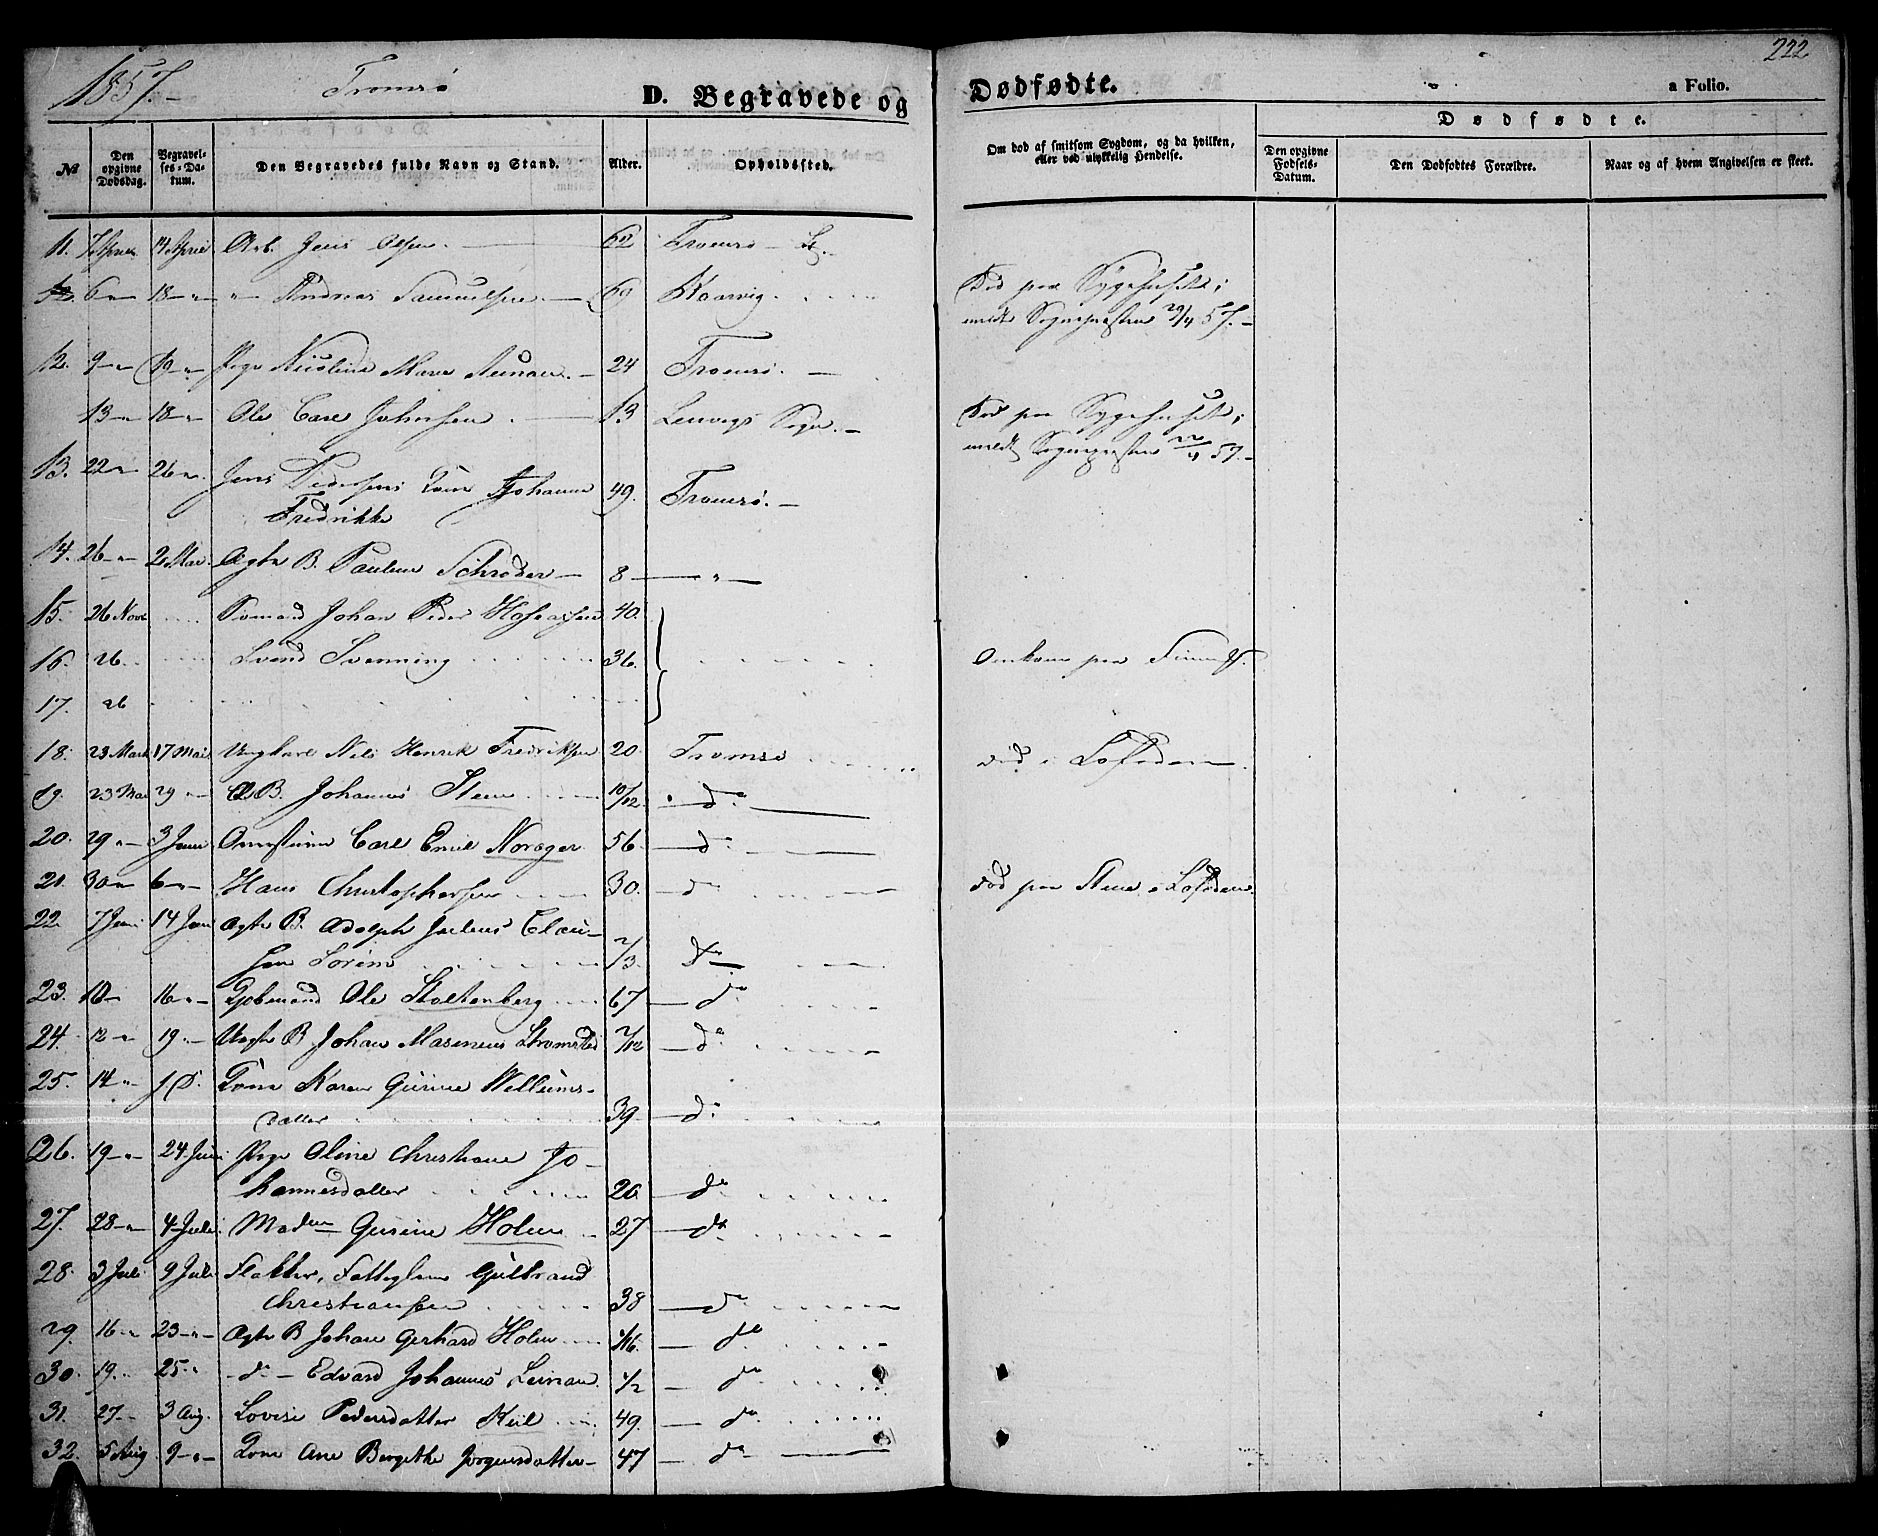 222
1857.-
Tromsø
D. Begravede og
Dødfødte.
a Folio.
Dødfødte.
№
Den opgivne Dødsdag.
Begravelses-Datum.
Den Begravedes fulde Navn og Stand.
Alder.
Opholdssted.
Om død af smitsom Sygdom, og da hvilken, eller ved ulykkelig Hendelse.
Den opgivne Fødsels-Datum.
Den Dødfødtes Forældre.
Naar og af hvem Angivelsen er skeet.
11. 7 April 14 April Arb. Jens Olsen. 62 Tromsø
6 - " 18 - " - " - Andreas Samuelsen 69 Kaarvig Død paa Sygehuset;
meldt Sognepræsten 29/4 57.-
12. 9 - " 19 - " Pige Nicoline Marie 24 Tromsø. -
13 - " 18 - " Ole Carl Johnsen 13 Lenvigs Sogn. - Død paa Sygehuset;
meldt Sognepræsten 22/4 57.-
13. 22 - " 26 - " Jens Pedersens Kone Johanne 49. Tromsø. -
Fredrikke
14. 26 - " 2 Mai Ægte B. Pauline Schrøder - 8 - " -
15. 26 Novb Sømand Johan Peder 40.
16. 26 Svend Svenning 36. Omkom paa
17. 26
18. 23 Marts 17 Mai Ungkarl Nils Henrik Fredriksen 20. Tromsø død i Lofoden
19. 23 Mai 29 - " Æ B. Johannes Steen 10/12. do
20. 29 - " 3 Juni Carl Emil Norager 56 d.
21. 30 - " 6 - " - Hans Christophersen 30. do død paa Stene i Lofoden.
22. 7 Juni 14 Juni Ægte B. Adolph Julius Clau-
sen Sørine 2/3. do
23. 10 - 16 - " - Kjøbmand Ole Stoltenberg 67 do
24. 12 - " 19 - Uægte B Johan Masenius Strømsted 7/12 do
25. 14 - " f. D. Kone Karen Gurine Willums-
datter 39 do
26. 19 - " - 24 Juni Pige Oline Christiane Jo-
hannesdatter 20. do
27. 28 - " 4 Juli Madm Gurine Holm 27 do
28. 3 Juli 9 Juli Fattiglem Gulbrand
Christiansen 38 do
29. 16 - " 23 - " - Ægte B Johan Gerhard Holm 4/16. do
30. 19. 25 - " - do - Edvard Johannes 1/2 do
31. 27 - 3 Aug. Lovise Pedersdatter Kiil 49. do
32. 5 Aug 9 - " - Kone Ane Bergithe Jørgensdatter - 47 do